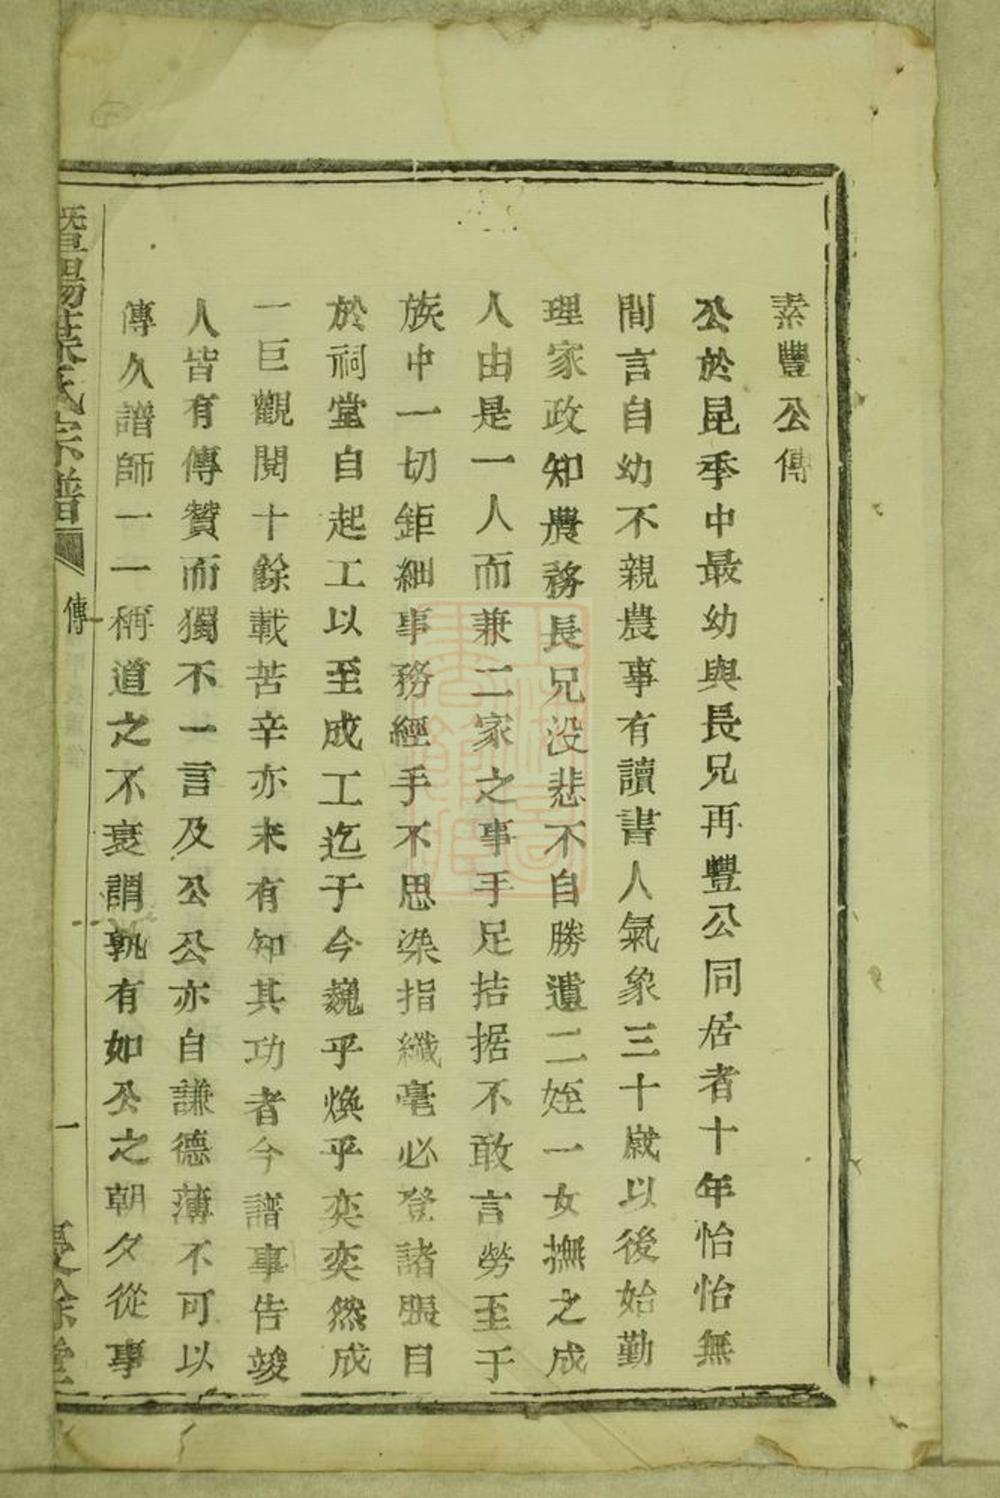 素豐公傳
公於昆季中最幼與長兄再豐公同居者十年怡怡無
間言自幼不親農事有讀書人氣象三十歲以後始勤
理家政知農務長兄没悲不自勝遺二姪一女撫之成
人由是一人而兼二家之事手足拮据不敢言勞至于
族中一切鉅細事務經手不思染指纖毫必登諸賬目
於祠堂自起工以至成工迄于今巍乎煥乎奕奕然成
一巨觀閱十餘載苦辛亦未有知其功者今譜事告竣
人皆有傳贊而獨不一言及公公亦自謙德薄不可以
傳久譜師一一稱道之不衰謂孰有如公之朝夕從事
暨陽葉氏宗譜 傳 一 餘堂